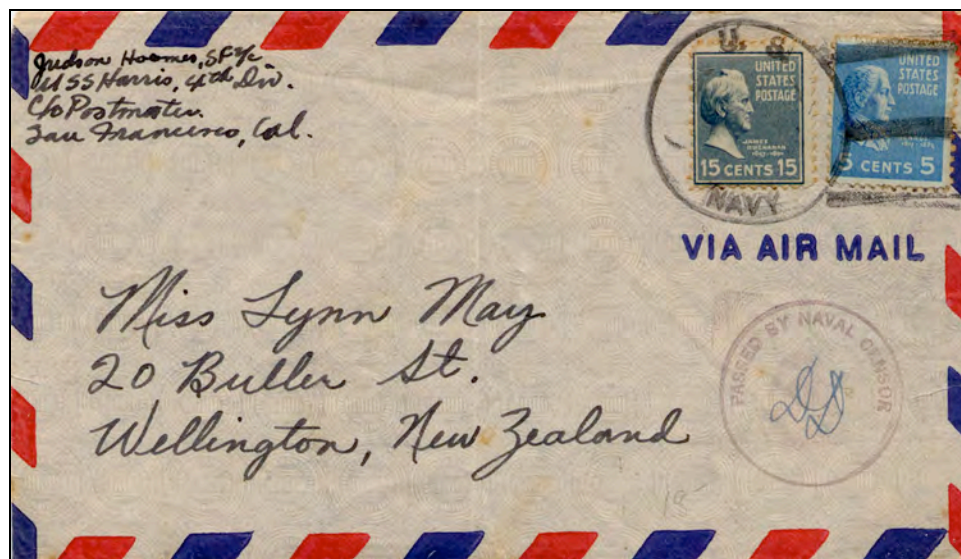 Judson Hoomes, SF 3/c
USS Harris, 4th Div.
C/o Postmaster.
San Francisco, Cal.
U. S.
NAVY
UNITED
STATES
POSTAGE
JAMES
BUCHANAN
15 CENTS 15
UNITED
STATES
POSTAGE
5 CENTS 5
VIA AIR MAIL
Miss Lynn May
20 Buller St.
Wellington, New Zealand
PASSED BY NAVAL CENSOR